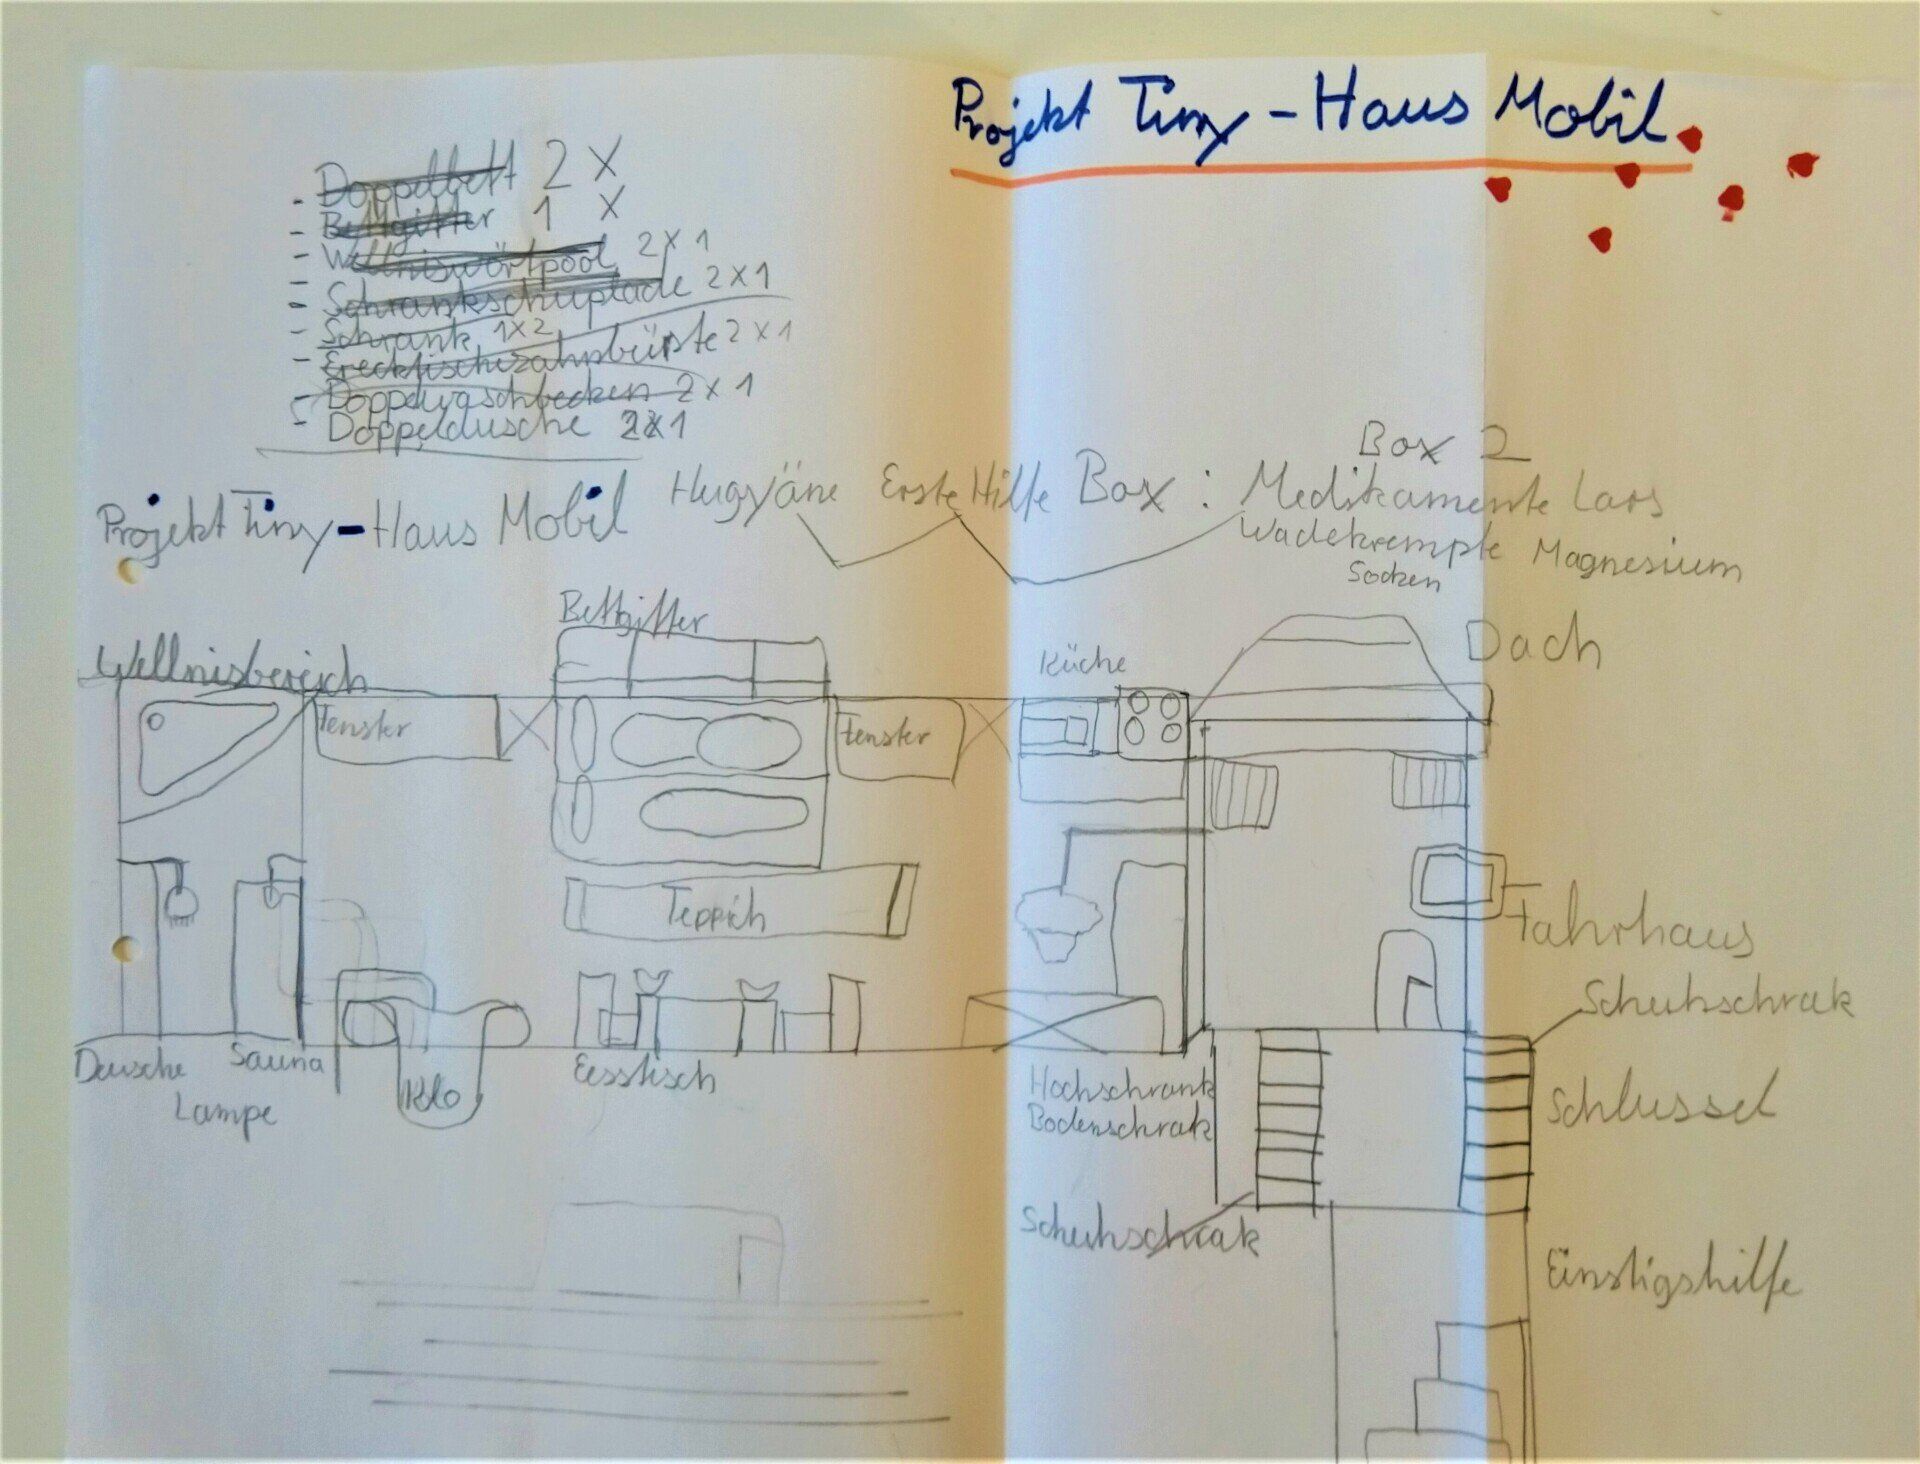 Projekt Tiny - Haus Mobil
- Doppelbett 2 X
- Bettgitter 1 X
- Wellniswörlpool 2 X 1
- Schrankschuplade 2 X 1
- Schrank 1X2
- Erecktischezahnbürste 2 X 1
- Doppelwaschbecken 2 X 1
- Doppeldusche 2X1
Box 2
Projekt Tiny - Haus Mobil Hugyäne Erste Hilfe Box : Medikamente Lars
Wadekrempfe Magnesium
Socken
Bettgitter
Wellnisbereich
Küche
Dach
Fenster
Fenster
Teppich
Fahrhaus
Schuhschrak
Dusche
Sauna
Klo
Eesstisch
Lampe
Hochschrank
Bodenschrak
Schlussel
Schuhschrak
Einstigshilfe